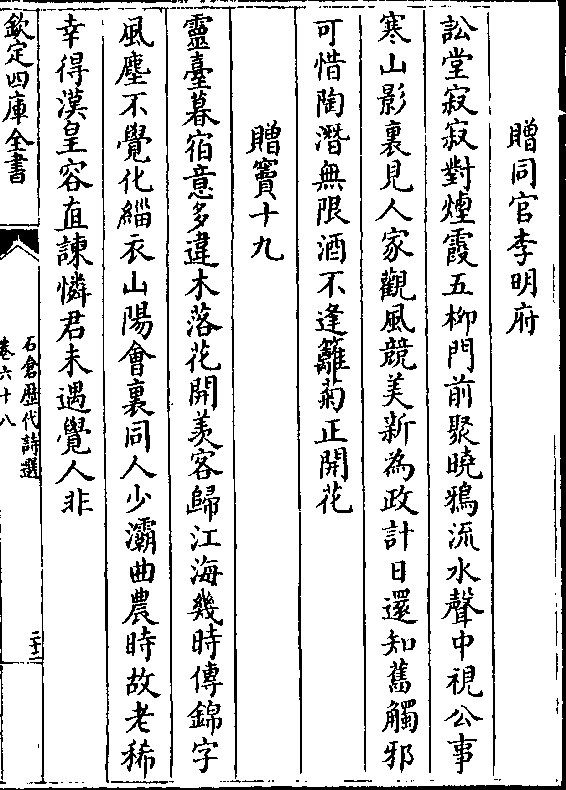 贈同官李明府
訟堂寂寂對煙霞五柳門前聚曉鴉流水聲中視公事
寒山影裏見人家觀風競美新為政計日還知舊觸邪
可惜陶潛無限酒不逢籬菊正開花
贈竇十九
靈臺暮宿意多違木落花開羡客歸江海幾時傳錦字
風塵不覺化緇衣山陽會裏同人少灞曲農時故老稀
幸得漢皇容直諫憐君未遇覺人非
欽定四庫全書
石倉歷代詩選
卷六十八